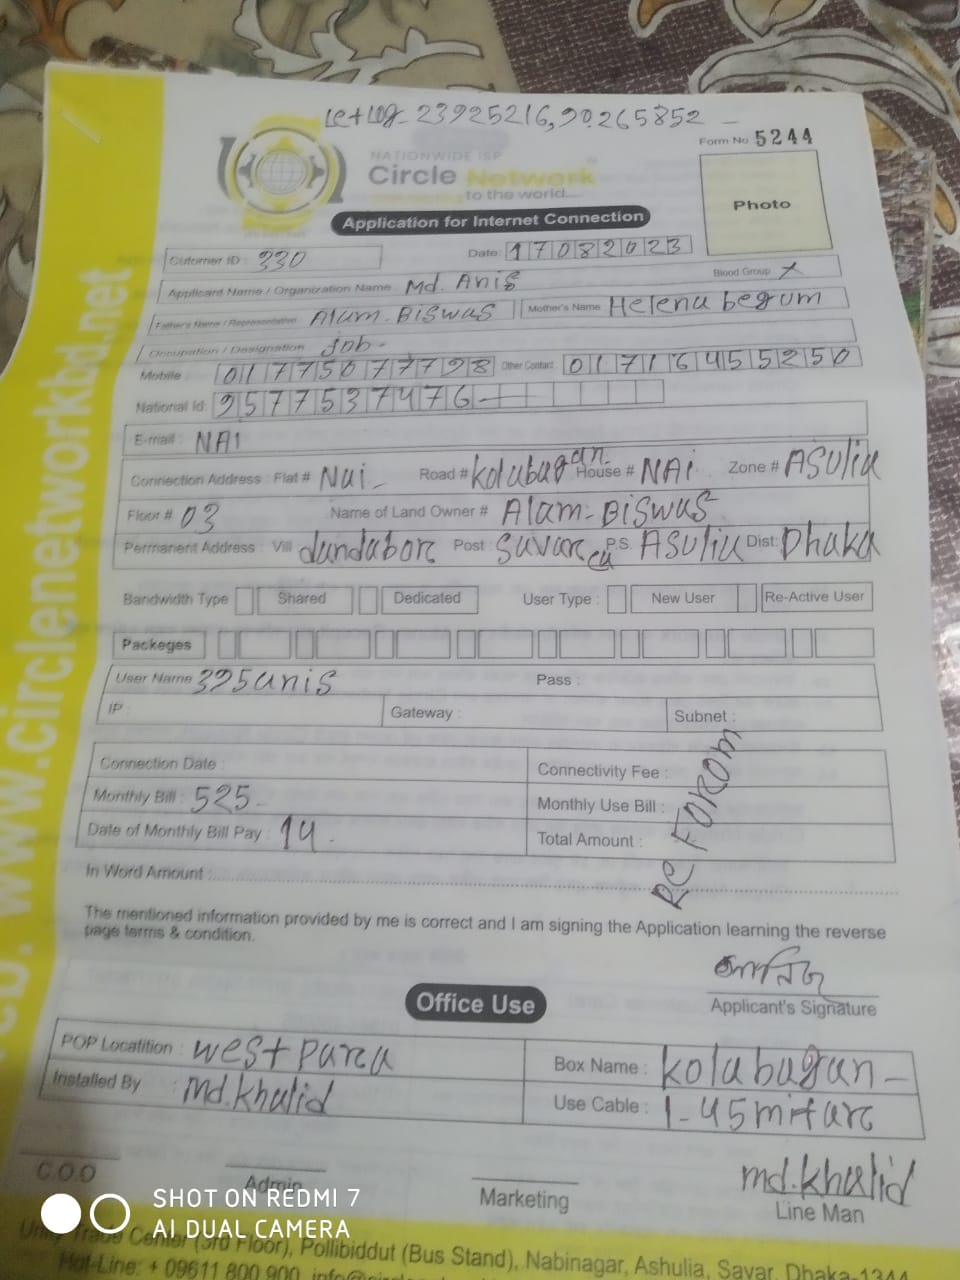 Let Log- 23925216, 90.265852
Form No 5244
NATIONWIDE ISP
Circle Network
to the world....
Photo
Application for Internet Connection
Cutomer ID : 330 Date: 17082023
Applicant Name / Organization Name : Md. Anis Blood Group X
Father's Name / Representative Alam-Biswas Mother's Name Helena begum
Occupation / Designation Job-
Mobile : 01775077798 Other Contact : 01716455250
National Id: 9577537476
E-mail : NAI
Connection Address : Flat # Nai - Road # kolabagan House # NAI Zone # ASuliu
Floor # 03 Name of Land Owner # Alam-Biswas
Permanent Address : Vill dundabor Post Suvar P.S. ASuliu Dist: Dhaka
Bandwidth Type Shared Dedicated User Type : New User Re-Active User
Packeges
User Name 395anis Pass :
IP : Gateway : Subnet :
Connection Date : Connectivity Fee :
Monthly Bill : 525- Monthly Use Bill :
Date of Monthly Bill Pay : 14. Total Amount :
RC FOROM
In Word Amount :
The mentioned information provided by me is correct and I am signing the Application learning the reverse
page terms & condition.
আনিছ
Applicant's Signature
Office Use
POP Locatition : west para Box Name : kolabagan-
Installed By : md.khalid Use Cable : 1-45mitarc
md.khalid
C.O.O Admin Marketing Line Man
Trade Center (3rd Floor), Pollibiddut (Bus Stand), Nabinagar, Ashulia, Savar, Dhaka-1344
Hot-Line: + 09611 800 900,
www.circlenetworkbd.net
SHOT ON REDMI 7
AI DUAL CAMERA